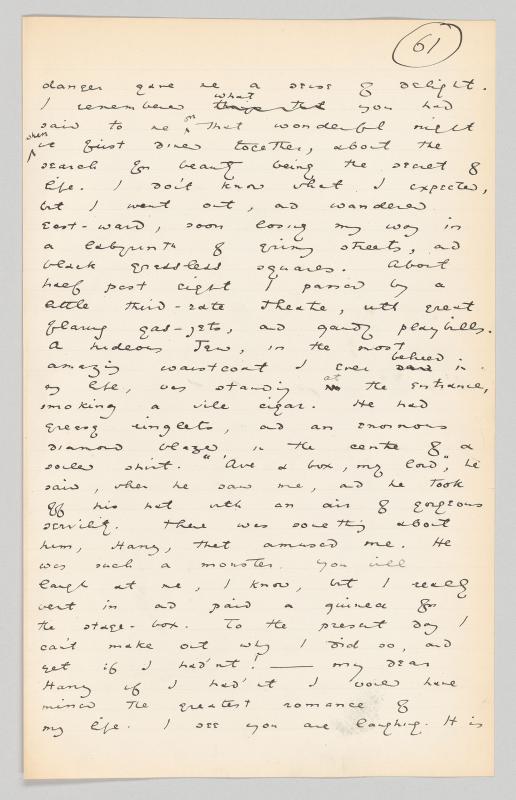 61
danger gave me a sense of delight.
I remembered what you had
said to me on that wonderful night
when we first dined together, about the
search for beauty being the secret of
life. I don't know what I expected,
but I went out, and wandered
East-ward, soon losing my way in
a labyrinth of grimy streets, and
black grassless squares. About
half past eight I passed by a
little third-rate theatre, with great
flaring gas-jets, and gaudy playbills.
A hideous Jew, in the most
amazing waistcoat I ever beheld in
my life, was standing at the entrance,
smoking a vile cigar. He had
greasy ringlets, and an enormous
diamond blazed in the centre of a
soiled shirt. "'Ave a box, my lord," he
said, when he saw me, and he took
off his hat with an air of gorgeous
servility. There was something about
him, Harry, that amused me. He
was such a monster. You will
laugh at me, I know, but I really
went in and paid a guinea for
the stage-box. To the present day I
can't make out why I did so, and
yet if I hadn't! — my dear
Harry if I hadn't I would have
missed the greatest romance of
my life. I see you are laughing. It is